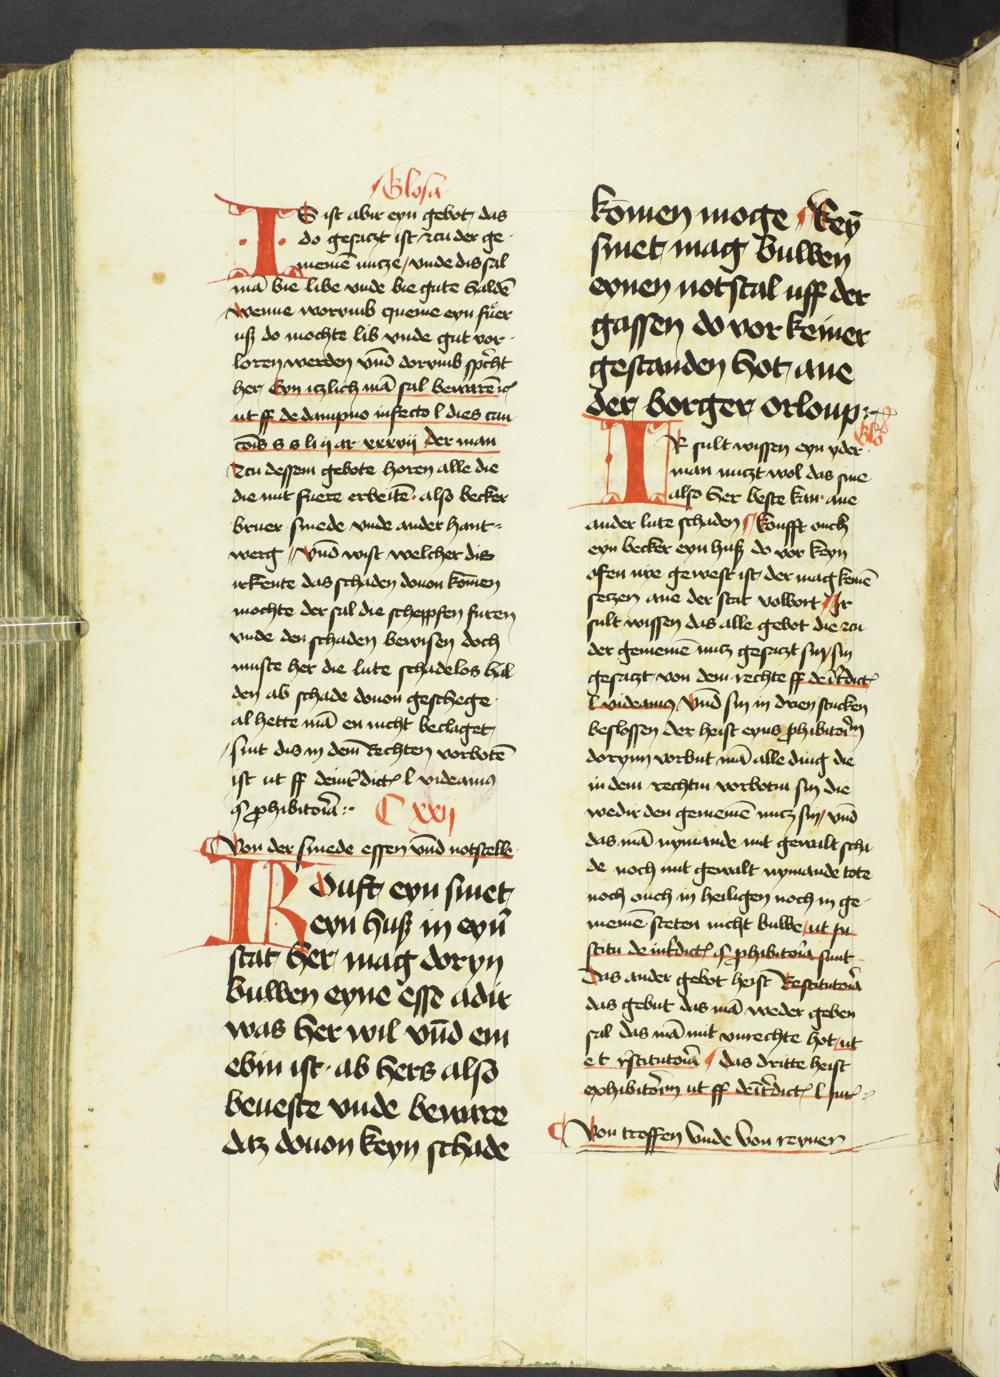 Glosa
IS ist abir eyn gebot das
do gesaczt ist czu der ge
meinē nucze / vnde dis sal
mā bie libe vnde bie gute haldē
wenne worvmb queme eyn fuer
uß do mochte lib vnde gut vor
loren werden vnd dorvmb spͨcht
her Eyn iczlich mā sal bewarē
ut ff de dampno infecto l dies cau
cōis
der man
Czu dessem gebote horen alle die
die mit fuere erbeitē · also becker
bruer smede vnde ander hant=
werg / Vnd wist welcher dis
irkente das schaden douon komen
mochte der sal die scheppfen furen
vnde den schaden bewisen doch
muste her die lute schadelos hal
den ab schade douon geschege
al hette mā en nicht beclaget
sint dis in dem Rechten vorbotē
ist ut ff deint̄dict l videamus
ꝓhibitoria
C xxij
Von der smede essen vnd notstelle
KOuft eyn smet
eyn huß in eyn̄
stat her mag doryn
buwen eyne esse adir
was her wil vnd em
ebin ist · ab hers also
beueste vnde beware
daz douon keyn schade
komen moge / Keyn
smet mag buwen
eynen notstal uff der
gassen do vor keiner
gestanden hot ane
der borger orloup
Glo
IR sult wissen eyn yder
man nuczt wol das sine
also her beste kan ane
ander lute schaden / koufft ouch
eyn becker eyn huß do vor keyn
ofen nye gewest ist der mag kenē
seczen ane der stat volbort / Ir
sult wissen das alle gebot die czu
der gemeinē nucz gesaczt sin / sin
gesaczt von dem rechte ff deint̄dict
l videamus / Vnd sin in drien stucken
beslossen der heist eyns ꝓhibitoriū
dorynn vorbut mā alle ding die
in dem rechtin vorbotin sin die
wedir den gemeinē nucz sin / vnd
das mā nymande mit gewalt scha
de noch mit gewalt nymande tote
noch ouch in heiligen noch in ge
meinē steten nicht buwe / ut in
stitu de int̄dict ꝓhibitoria sunt
Das ander gebot heist Restitutoria
das gebut das mā weder geben
sal das mā mit vnrechte hot / ut
e t r̄stitutoria / das dritte heist
exhibitoriū ut ff deint̄dict l
Von troffen vnde von reyner